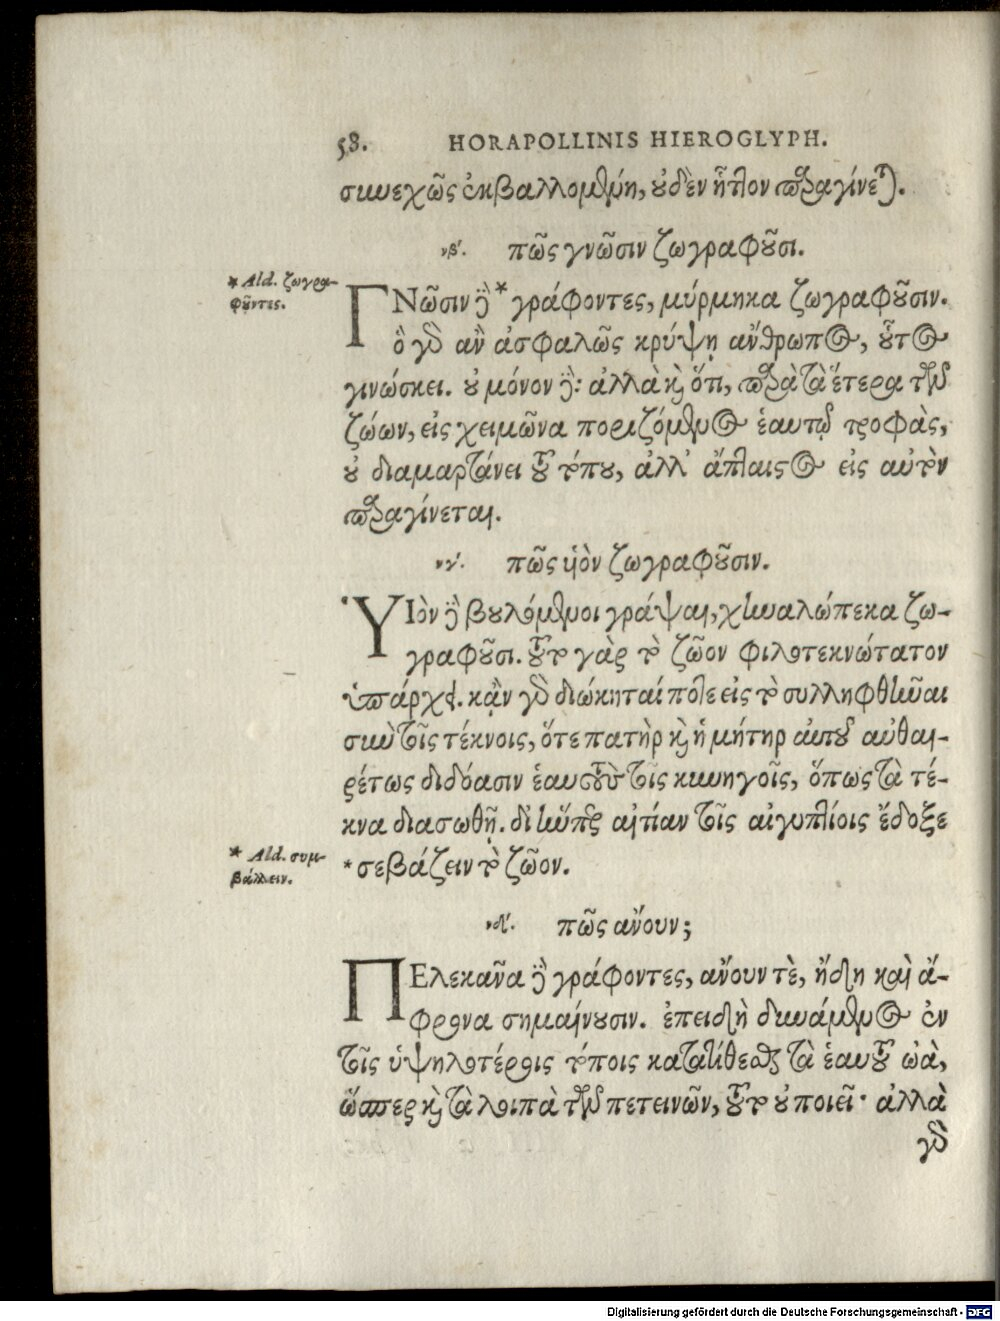 58. HORAPOLLINIS HIEROGLYPH.
συνεχῶς ἐκβαλλομένη, οὐδὲν ἧττον παραγίνεται.
νβʹ. πῶς γνῶσιν ζωγραφοῦσι.
* Ald. ζωγρα-
φοῦντες.
ΓΝῶσιν δὲ * γράφοντες, μύρμηκα ζωγραφοῦσιν.
ὃ γὸ ἂν ἀσφαλῶς κρύψῃ ἄνθρωπος, οὗτος
γινώσκει. οὐ μόνον δὲ: ἀλλὰ καὶ ὅτι, παρὰ τὰ ἕτερα τῶν
ζώων, εἰς χειμῶνα ποριζόμενος ἑαυτῷ τροφὰς,
οὐ διαμαρτάνει τοῦ τόπου, ἀλλ' ἄπταιστος εἰς αὐτὸν
παραγίνεται.
νγʹ. πῶς υἱὸν ζωγραφοῦσιν.
ὙΙὸν δὲ βουλόμενοι γράψαι, χηναλώπεκα ζω-
γραφοῦσι. τοῦτο γὰρ τὸ ζῶον φιλοτεκνώτατον
ὑπάρχει. κἂν γὸ διώκηταί ποτε εἰς τὸ συλληφθῆναι
σὺν τοῖς τέκνοις, ὅτε πατὴρ καὶ ἡ μήτηρ αὐτοῦ αὐθαι-
ρέτως διδόασιν ἑαυτοὺς τοῖς κυνηγοῖς, ὅπως τὰ τέ-
κνα διασωθῇ. δι' ἥνπερ αἰτίαν τοῖς αἰγυπτίοις ἔδοξε
* Ald. συμ-
βάλλειν.
* σεβάζειν τὸ ζῶον.
νδʹ. πῶς ἄνουν;
ΠΕλεκᾶνα δὲ γράφοντες, ἄνουν τὲ, ἤδη καὶ ἄ-
φρονα σημαίνουσιν. ἐπειδὴ δυνάμενος ἐν
τοῖς ὑψηλοτέροις τόποις κατατίθεσθαι τὰ ἑαυτοῦ ὠὰ,
ὥσπερ καὶ τὰ λοιπὰ τῶν πετεινῶν, τοῦτο οὐ ποιεῖ· ἀλλὰ
γὸ
Digitalisierung gefördert durch die Deutsche Forschungsgemeinschaft - DFG